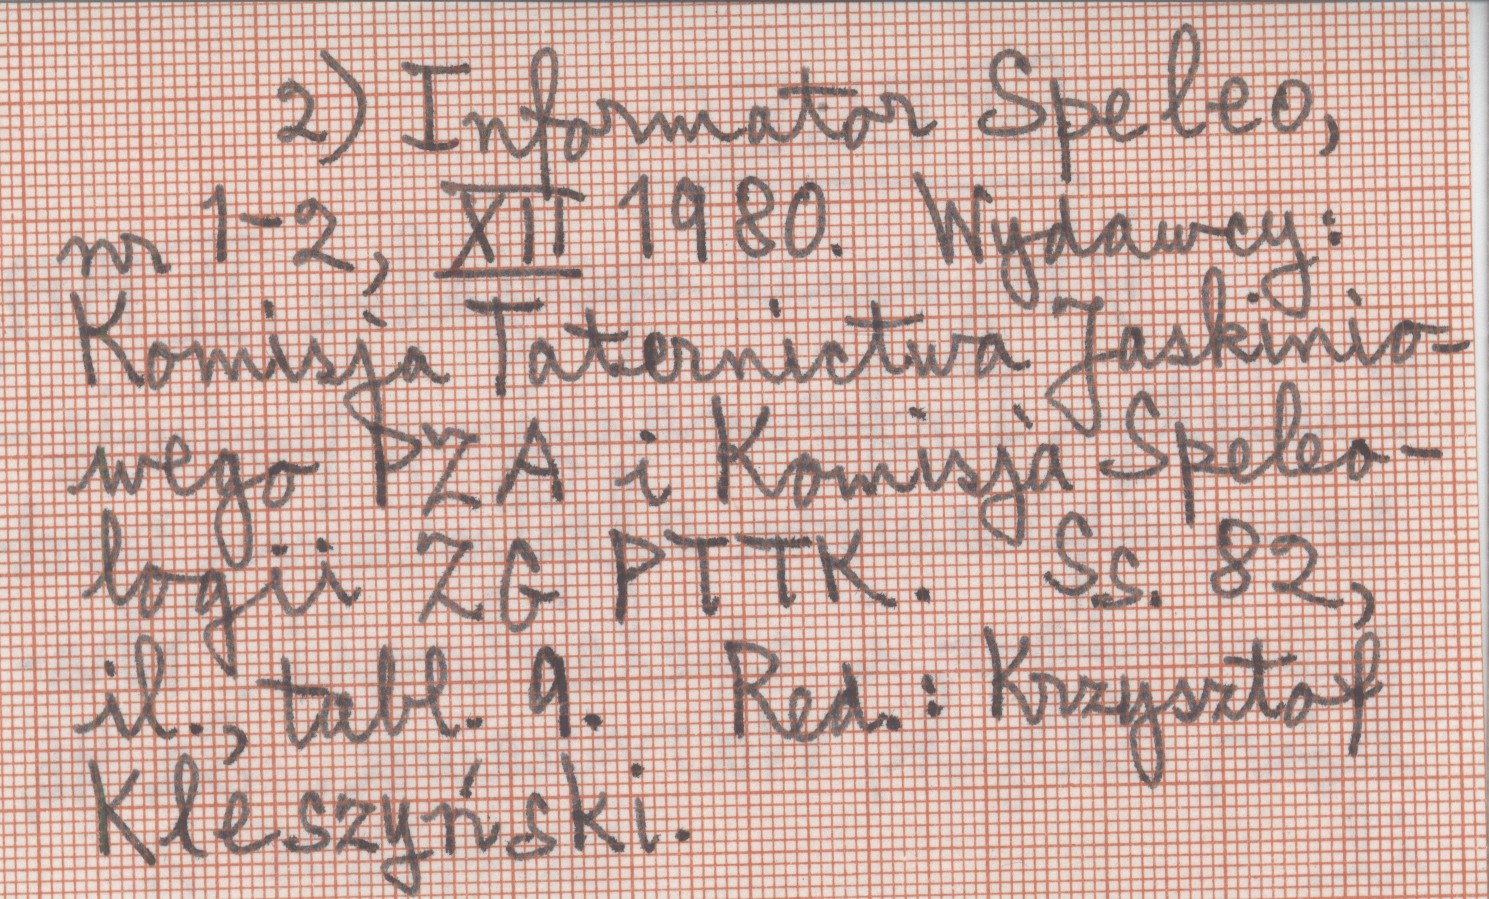 2) Informator Speleo,
nr 1-2, XII 1980. Wydawcy:
Komisja Taternictwa Jaskinio-
wego PZA i Komisja Speleo-
logii ZG PTTK. Ss. 82,
il., tabl. 9. Red.: Krzysztof
Kleszyński.